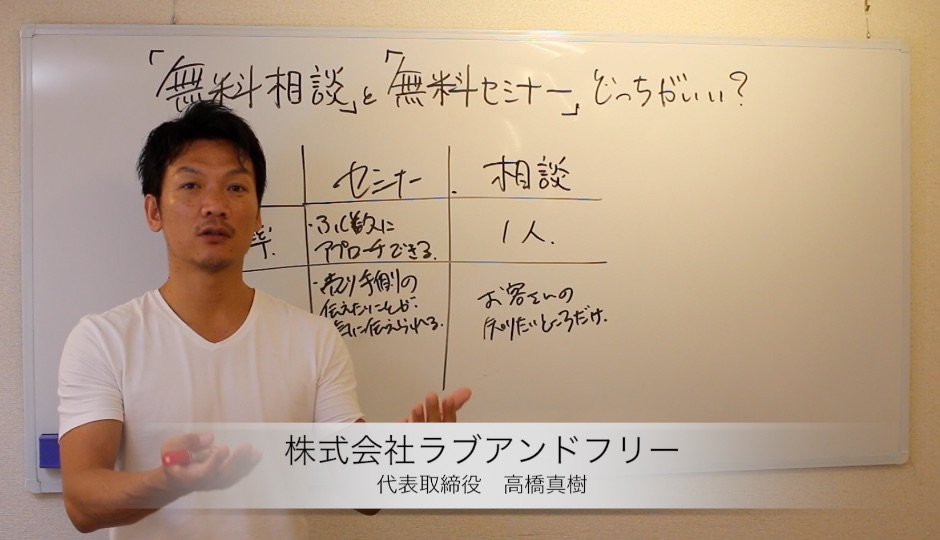 「無料相談」と「無料セミナー」どっちがいい？
セミナー
相談
率.
・ふく数に
アプローチできる.
1人.
・売り手側の
伝えたいことが.
気に伝えられる.
お客さんの
知りたいところだけ.
株式会社ラブアンドフリー
代表取締役 高橋真樹